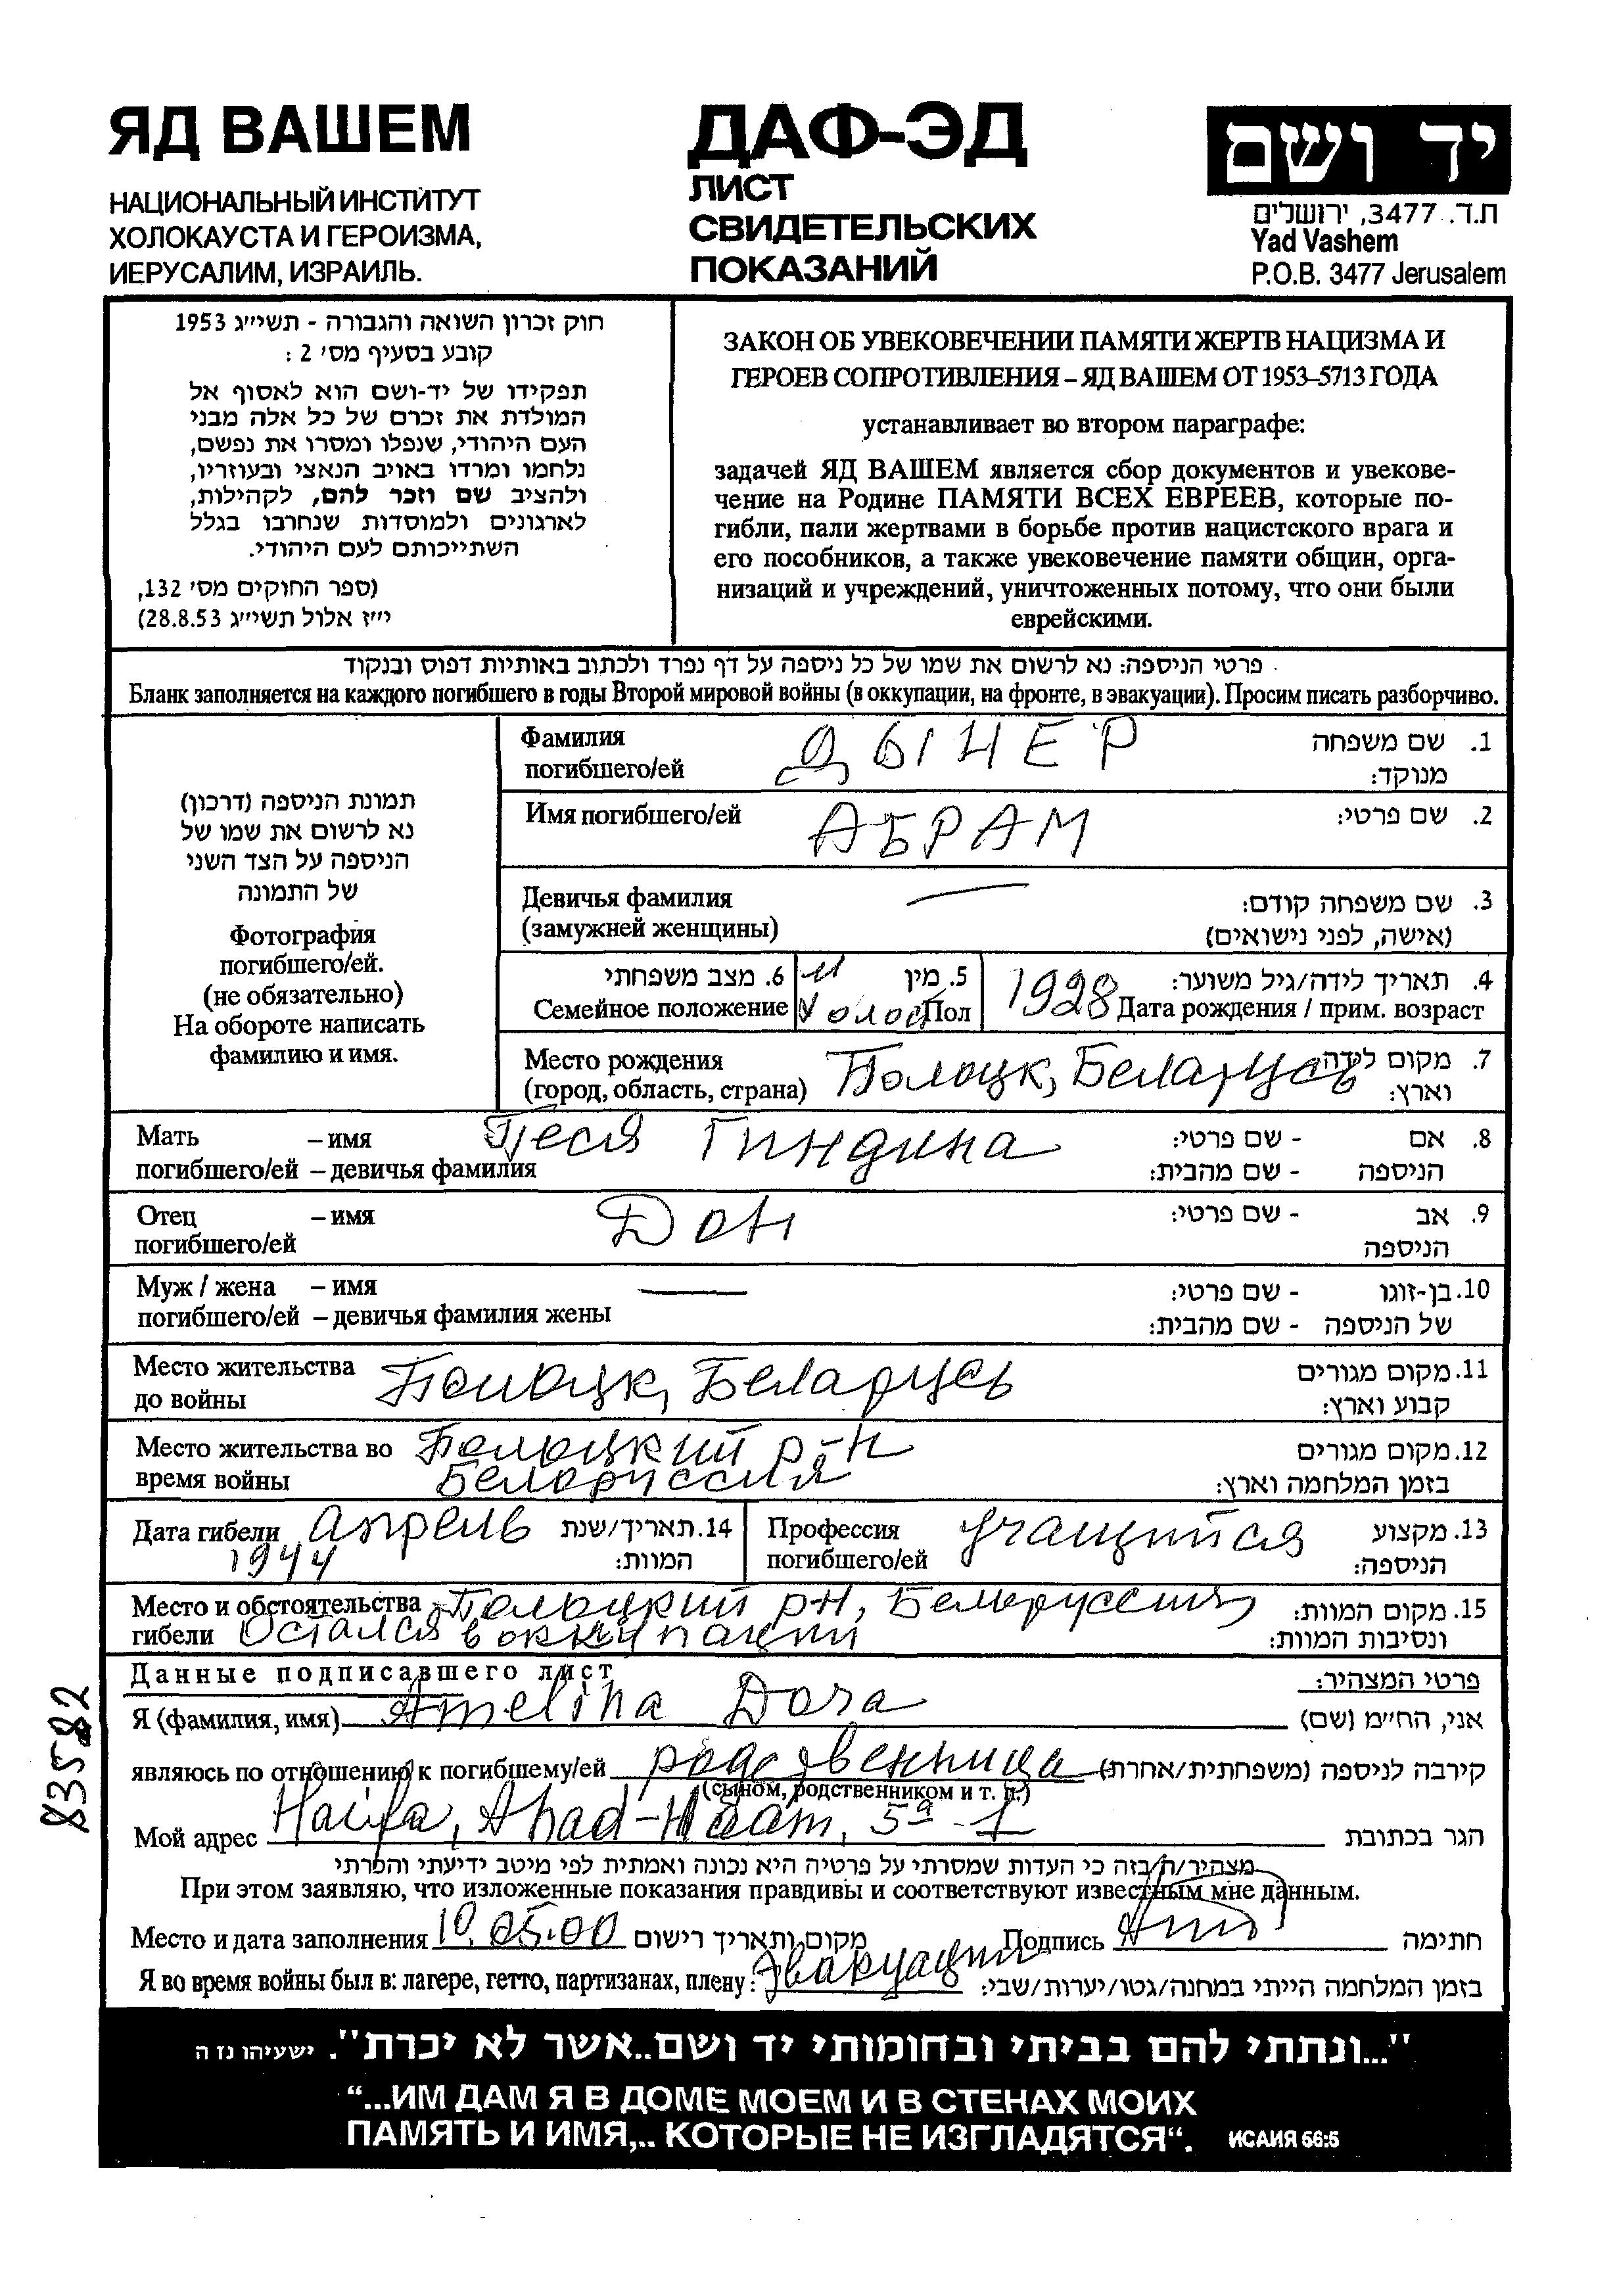 ЯД ВАШЕМ
НАЦИОНАЛЬНЫЙ ИНСТИТУТ
ХОЛОКАУСТА И ГЕРОИЗМА,
ИЕРУСАЛИМ, ИЗРАИЛЬ.
ДАФ-ЭД
ЛИСТ
СВИДЕТЕЛЬСКИХ
ПОКАЗАНИЙ
יד ושם
ת.ד. 3477, ירושלים
Yad Vashem
P.O.B. 3477 Jerusalem
חוק זכרון השואה והגבורה - תשי״ג 1953
קובע בסעיף מס׳ 2 :
תפקידו של יד-ושם הוא לאסוף אל
המולדת את זכרם של כל אלה מבני
העם היהודי, שנפלו ומסרו את נפשם,
נלחמו ומרדו באויב הנאצי ובעוזריו,
ולהציב שם וזכר להם, לקהילות,
לארגונים ולמוסדות שנחרבו בגלל
השתייכותם לעם היהודי.
(ספר החוקים מס׳ 132,
י״ז אלול תשי״ג 28.8.53)
ЗАКОН ОБ УВЕКОВЕЧЕНИИ ПАМЯТИ ЖЕРТВ НАЦИЗМА И
ГЕРОЕВ СОПРОТИВЛЕНИЯ – ЯД ВАШЕМ ОТ 1953–5713 ГОДА
устанавливает во втором параграфе:
задачей ЯД ВАШЕМ является сбор документов и увекове-
чение на Родине ПАМЯТИ ВСЕХ ЕВРЕЕВ, которые по-
гибли, пали жертвами в борьбе против нацистского врага и
его пособников, а также увековечение памяти общин, орга-
низаций и учреждений, уничтоженных потому, что они были
еврейскими.
פרטי הניספה: נא לרשום את שמו של כל ניספה על דף נפרד ולכתוב באותיות דפוס ובנקוד
Бланк заполняется на каждого погибшего в годы Второй мировой войны (в оккупации, на фронте, в эвакуации). Просим писать разборчиво.
תמונת הניספה (דרכון)
נא לרשום את שמו של
הניספה על הצד השני
של התמונה
Фотография
погибшего/ей.
(не обязательно)
На обороте написать
фамилию и имя.
Фамилия ДЫНЕР 1. שם משפחה
погибшего/ей מנוקד:
Имя погибшего/ей АБРАМ 2. שם פרטי:
Девичья фамилия — 3. שם משפחה קודם:
(замужней женщины) (אישה, לפני נישואים)
6. מצב משפחתי м 5. מין 1928 4. תאריך לידה/גיל משוער:
Семейное положение холост Пол Дата рождения / прим. возраст
Место рождения Полоцк, Беларусь 7. מקום לידה
(город, область, страна) וארץ:
Мать – имя Песя Гиндина 8. אם - שם פרטי:
погибшего/ей – девичья фамилия הניספה - שם מהבית:
Отец – имя Дон 9. אב - שם פרטי:
погибшего/ей הניספה
Муж / жена – имя — 10. בן-זוגו - שם פרטי:
погибшего/ей – девичья фамилия жены של הניספה - שם מהבית:
Место жительства Полоцк, Беларусь 11. מקום מגורים
до войны קבוע וארץ:
Место жительства во Полоцкий р-н 12. מקום מגורים
время войны Белоруссия בזמן המלחמה וארץ:
Дата гибели апрель 14. תאריך/שנת
1944 המוות:
Профессия учащийся 13. מקצוע
погибшего/ей הניספה:
Место и обстоятельства Полоцкий р-н, Белоруссия 15. מקום המוות:
гибели Остался в оккупации ונסיבות המוות:
Данные подписавшего лист פרטי המצהיר:
Я (фамилия, имя) Amelina Dora אני, החי״מ (שם)
являюсь по отношению к погибшему/ей родственница קירבה לניספה (משפחתית/אחרת)
(сыном, родственником и т. п.)
Мой адрес Haifa, Ahad-Haam, 5a-1 הגר בכתובת
מצהיר/ה בזה כי העדות שמסרתי על פרטיה היא נכונה ואמתית לפי מיטב ידיעתי והכרתי
При этом заявляю, что изложенные показания правдивы и соответствуют известным мне данным.
Место и дата заполнения 10.05.00 מקום ותאריך רישום Подпись חתימה
Я во время войны был в: лагере, гетто, партизанах, плену: эвакуации בזמן המלחמה הייתי במחנה/גטו/יערות/שבי:
83582
"...ונתתי להם בביתי ובחומותי יד ושם..אשר לא יכרת". ישעיהו נז ה
“...ИМ ДАМ Я В ДОМЕ МОЕМ И В СТЕНАХ МОИХ
ПАМЯТЬ И ИМЯ,.. КОТОРЫЕ НЕ ИЗГЛАДЯТСЯ“. ИСАИЯ 56:5